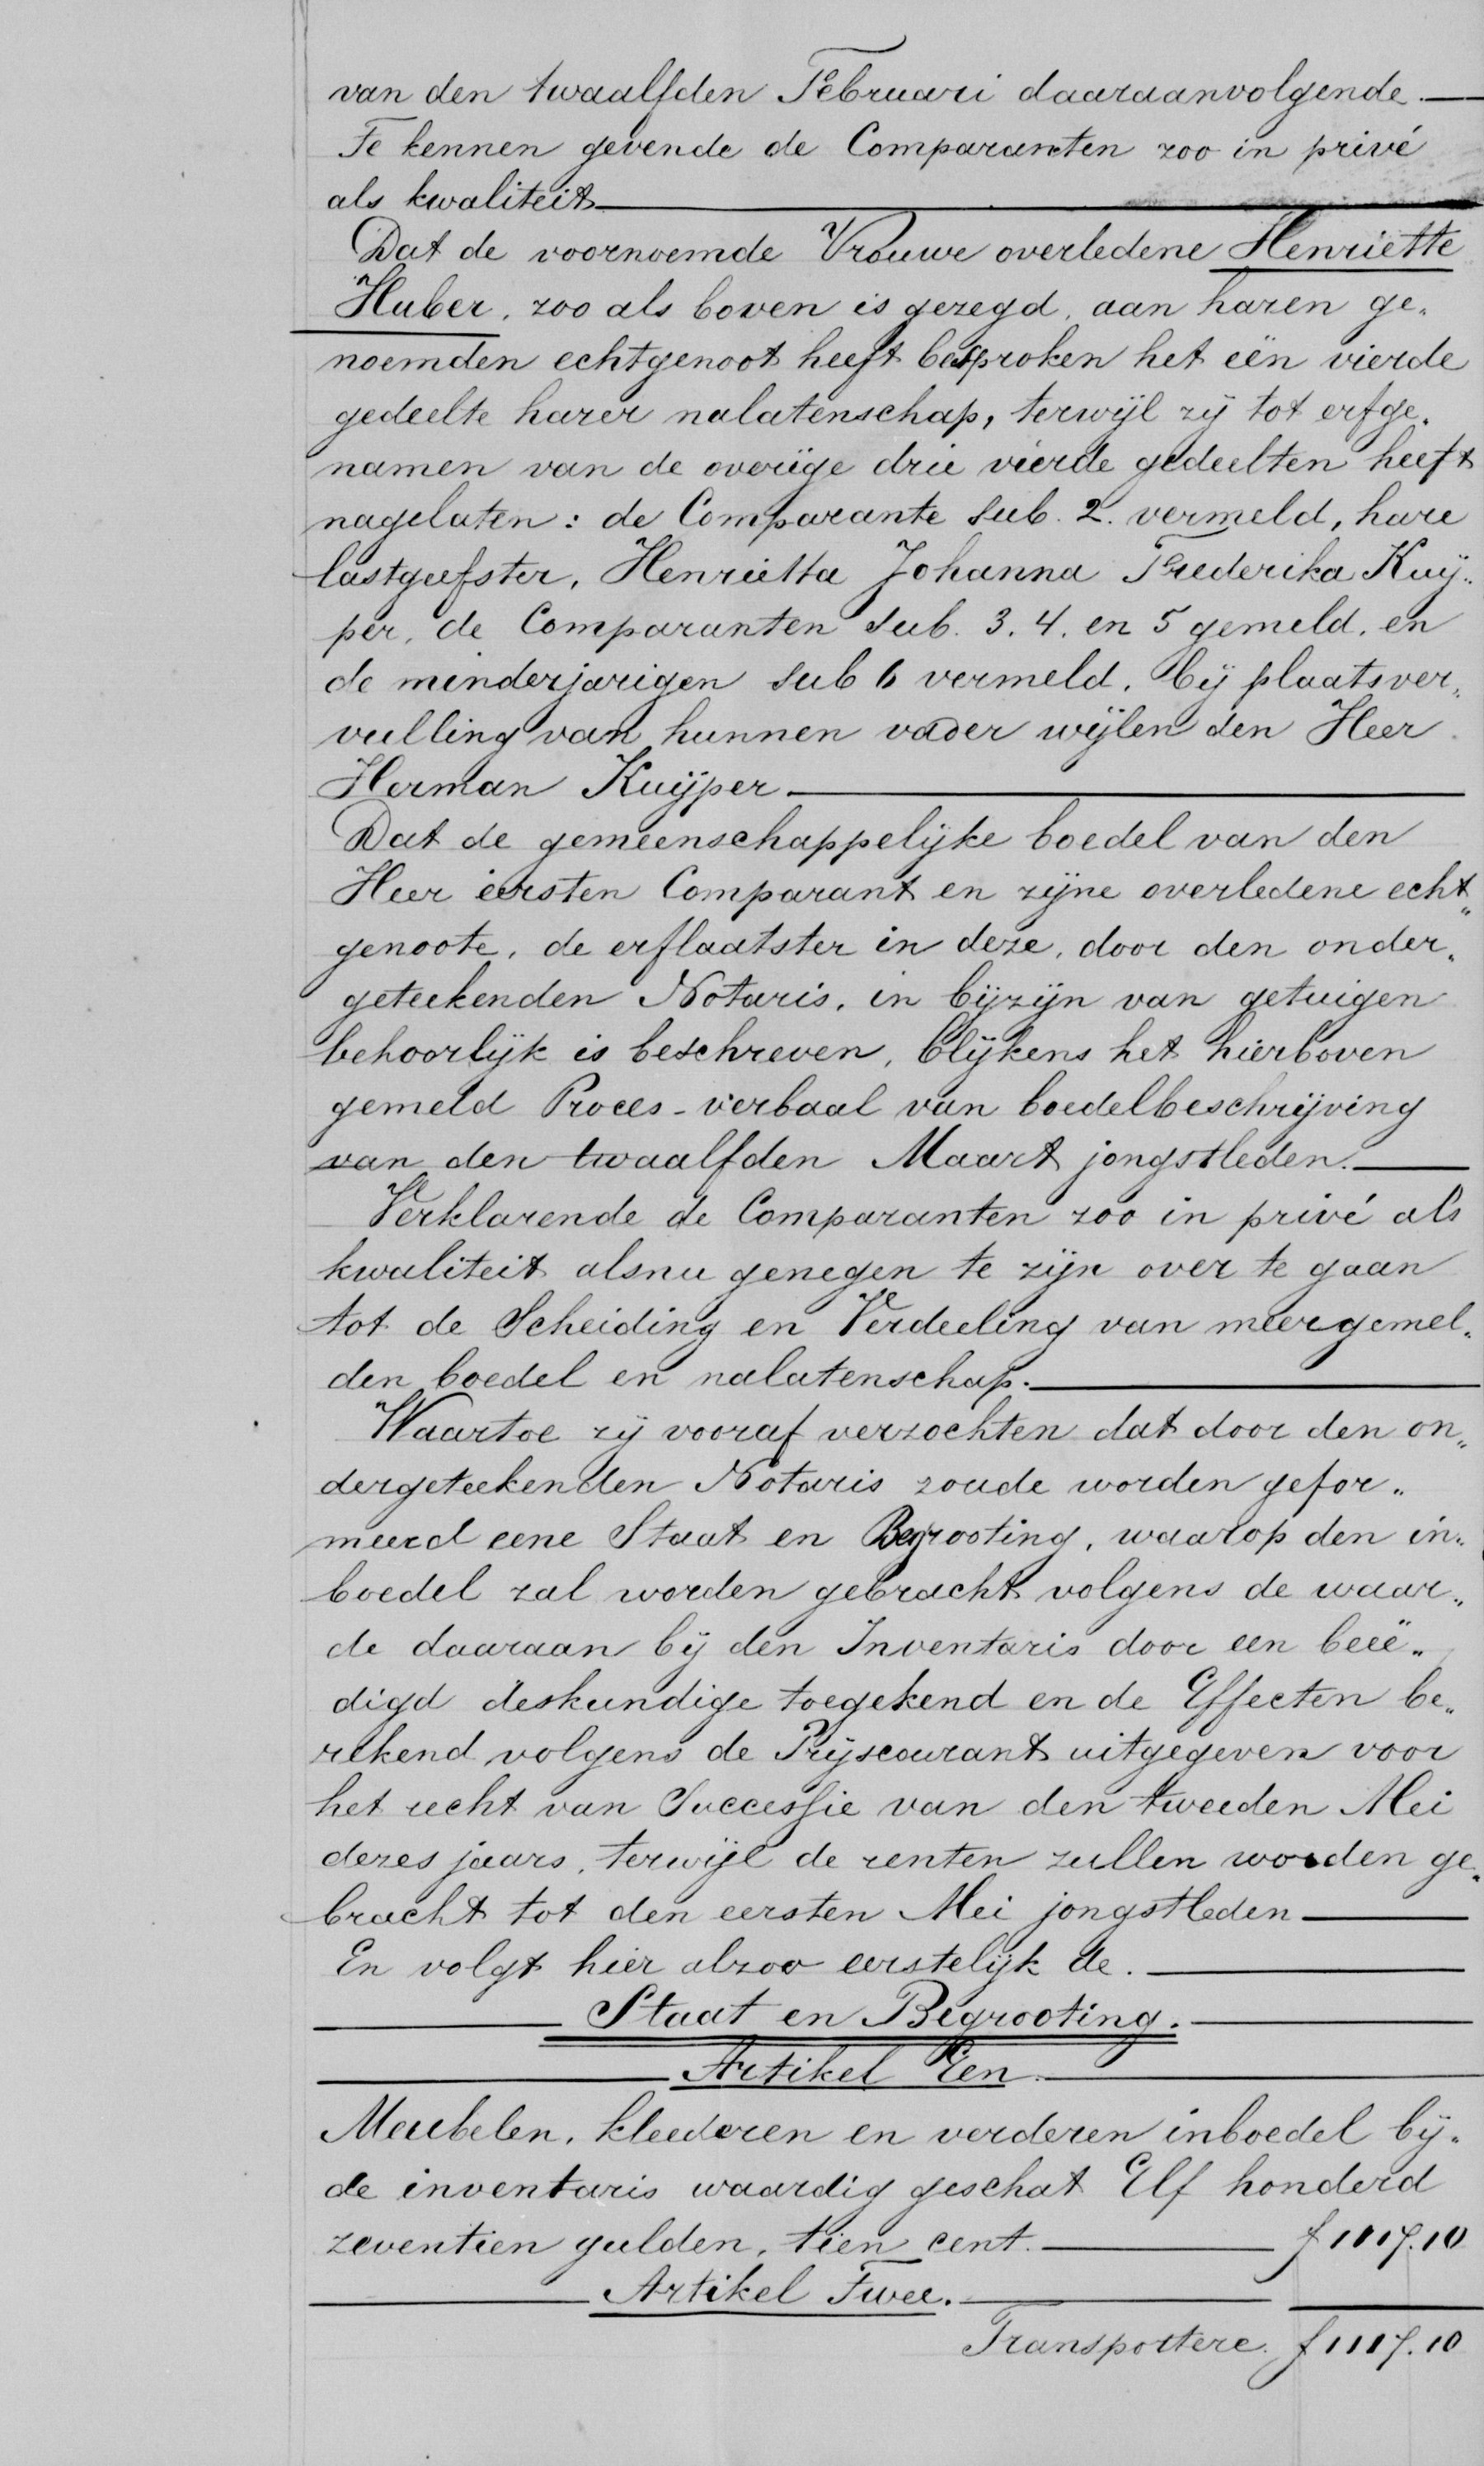 van den twaalfden Februari daaraanvolgende.
Te kennen gevende de Comparanten zoo in privé
als kwaliteit
Dat de voornoemde Vrouwe overledene Henriette
Huber, zoo als boven is gezegd, aan haren ge„
noemden echtgenoot heeft besproken het één vierde
gedeelte harer nalatenschap, terwijl zij tot erfge„
namen van de overige drie vierde gedeelten heeft
nagelaten: de Comparante sub. 2. vermeld, hare
lastgeefster, Henrietta Johanna Frederika Kuij„
per, de Comparanten sub. 3. 4. en 5 gemeld, en
de minderjarigen sub 6 vermeld, bij plaatsver„
vulling van hunnen vader wijlen den Heer
Herman Kuijper.
Dat de gemeenschappelijke boedel van den
Heer eersten Comparant en zijne overledene echt„
genoote, de erflaatster in deze, door den onder„
geteekenden Notaris, in bijzijn van getuigen
behoorlijk is beschreven, blijkens het hierboven
gemeld Proces-verbaal van boedelbeschrijving
van den twaalfden Maart jongstleden.
Verklarende de Comparanten zoo in privé als
kwaliteit alsnu genegen te zijn over te gaan
tot de Scheiding en Verdeeling van meergemel„
den boedel en nalatenschap.
Waartoe zij vooraf verzochten dat door den on„
dergeteekenden Notaris zoude worden gefor„
meerd eene Staat en Begrooting, waarop den in„
boedel zal worden gebracht volgens de waar„
de daaraan bij den Inventaris door een beëe„
digd deskundige toegekend en de Effecten be„
rekend volgens de Prijscourant uitgegeven voor
het recht van Successie van den tweeden Mei
dezes jaars, terwijl de renten zullen worden ge„
bracht tot den eersten Mei jongstleden
En volgt hier alzoo eerstelijk de.
Staat en Begrooting.
Artikel Een.
Meubelen, kleederen en verderen inboedel bij„
de inventaris waardig geschat Elf honderd
zeventien gulden, tien cent. f 1117.10
Artikel Twee.
Transportere. f 1117.10